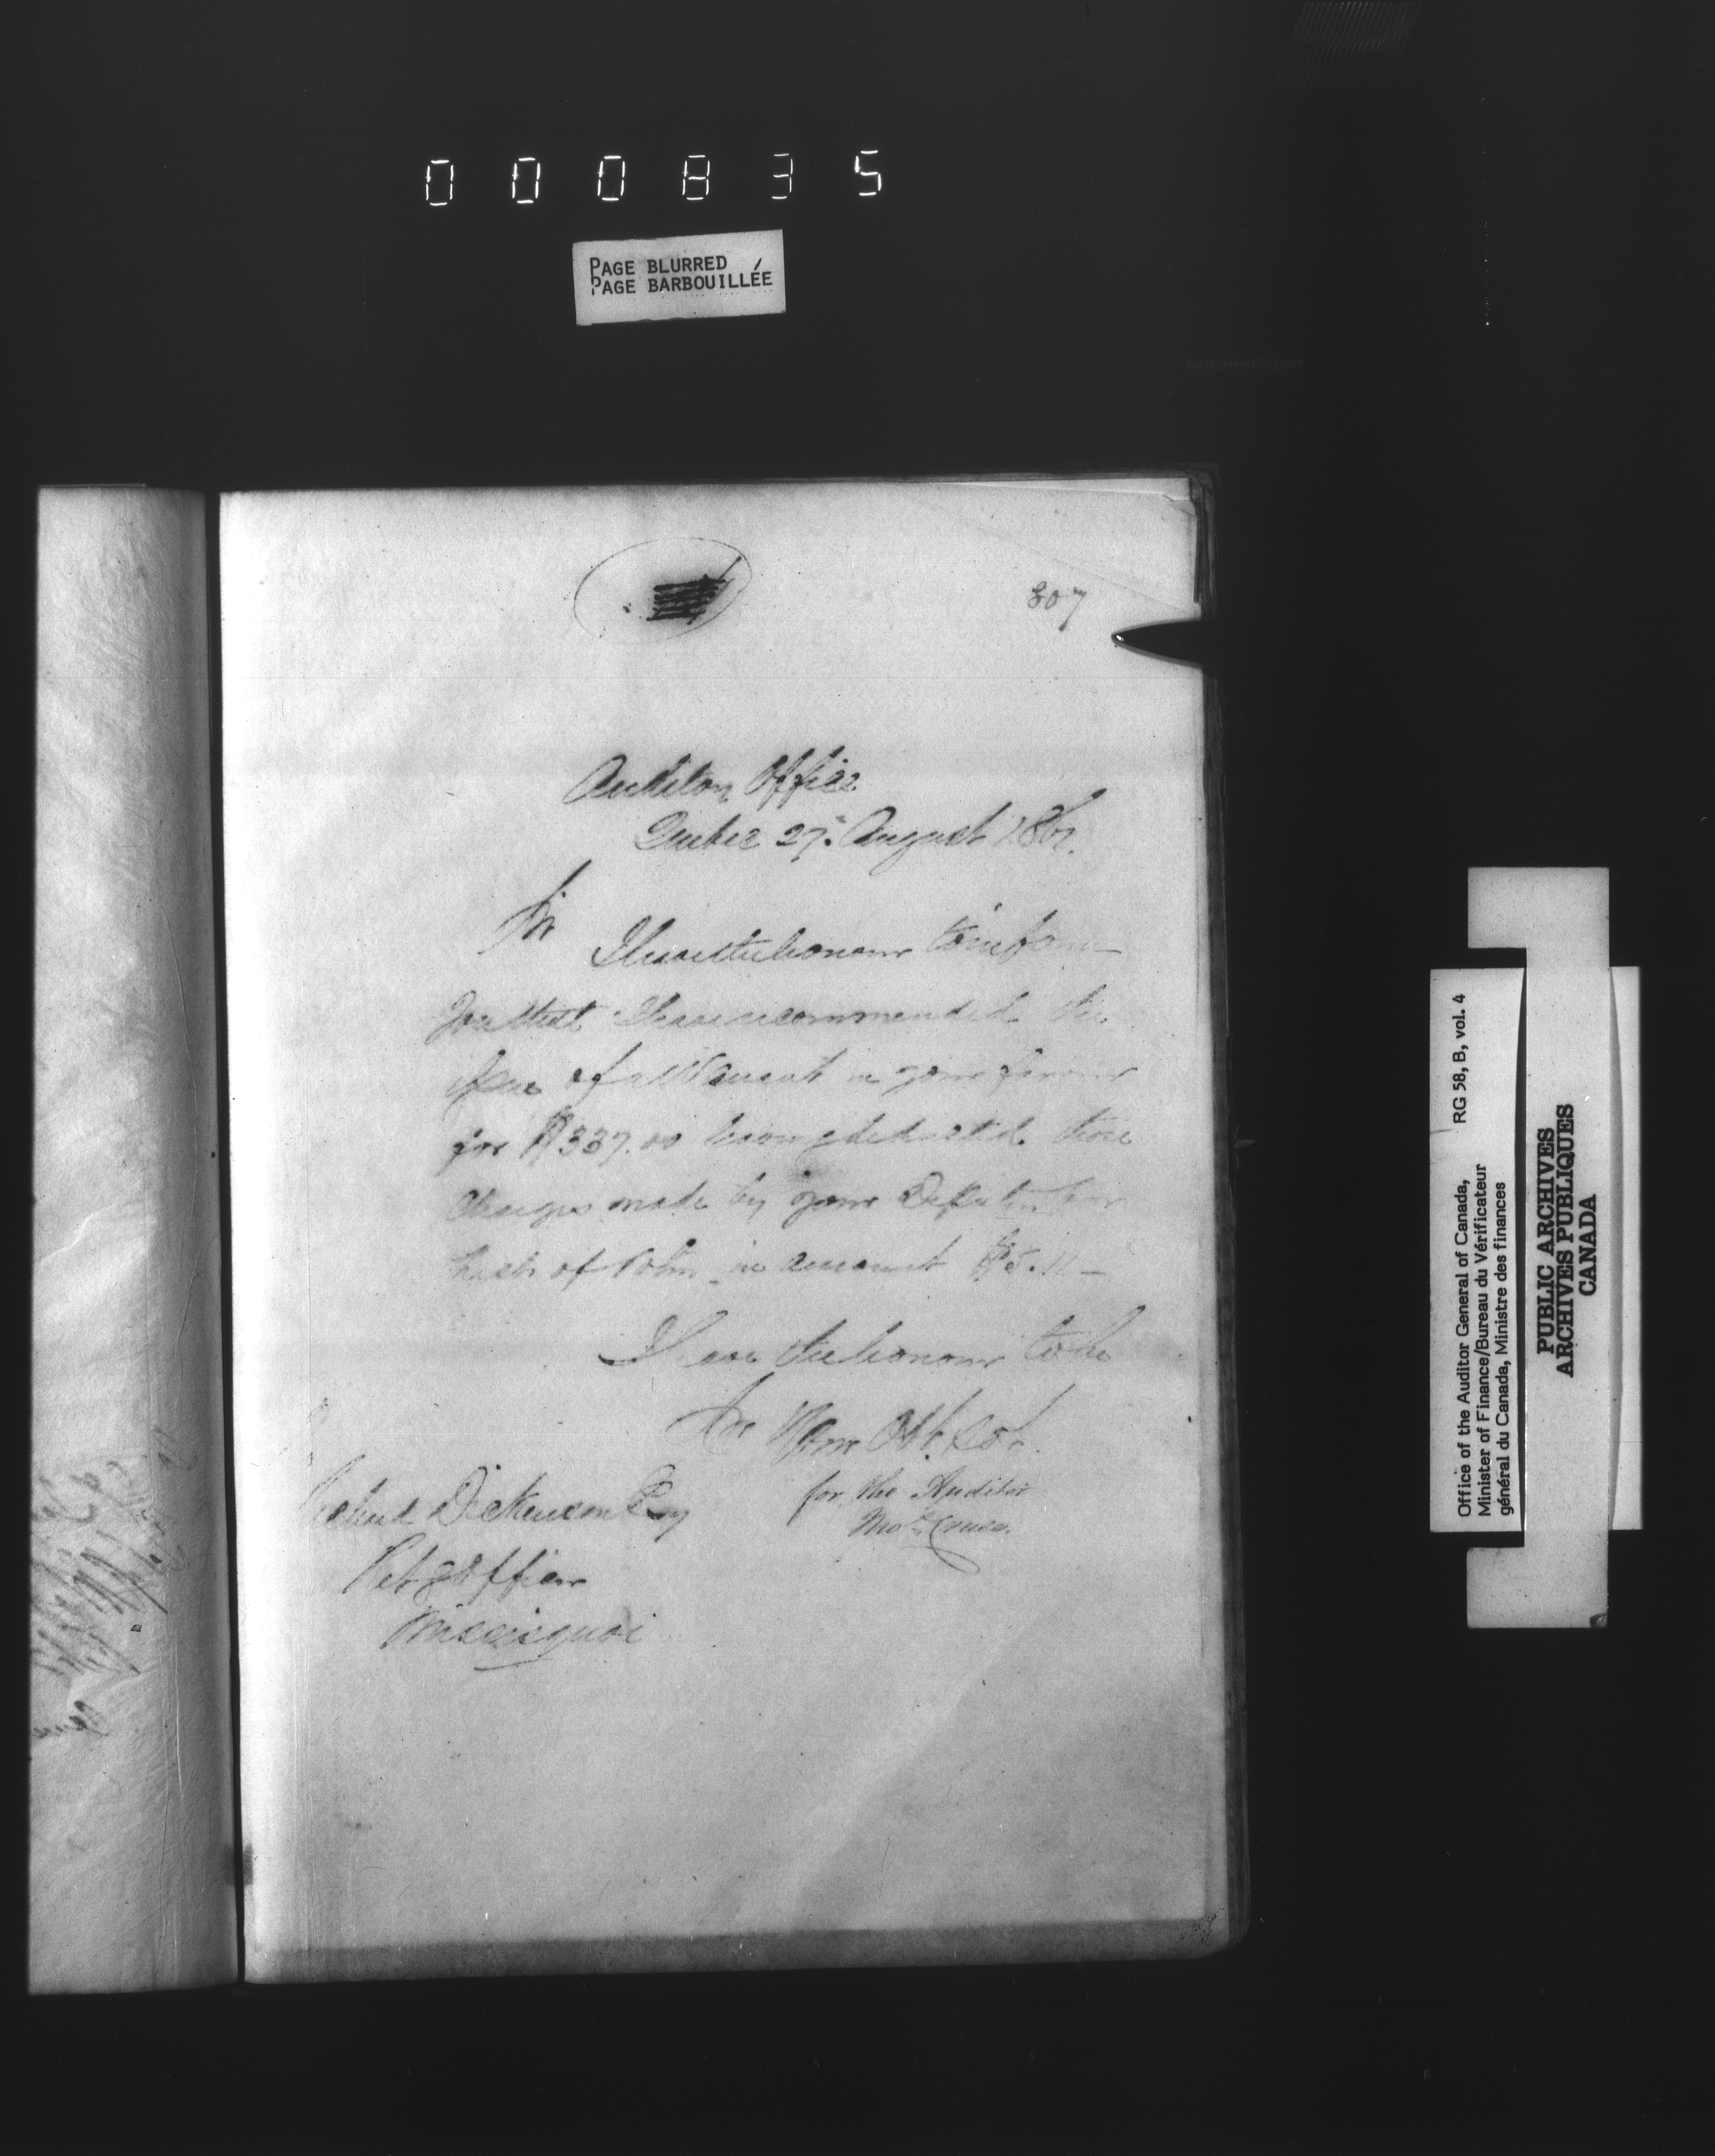 000835
PAGE BLURRED
PAGE BARBOUILLÉE
307
Auditor Office
Quebec 27. August 186
Sir
I have the honour to inform
you that I have recommended the
issue of a Warrant in your favour
for $337.00 having deducted three
charges made by your
of in amount $5.11 –
I have the honour to be
Sir Your Obt.
for the Auditor
Dickenson Esq
Retg Officer
Missisquoi
Office of the Auditor General of Canada,
Minister of Finance/Bureau du Vérificateur
général du Canada, Ministre des finances
RG 58, B, vol. 4
PUBLIC ARCHIVES
ARCHIVES PUBLIQUES
CANADA